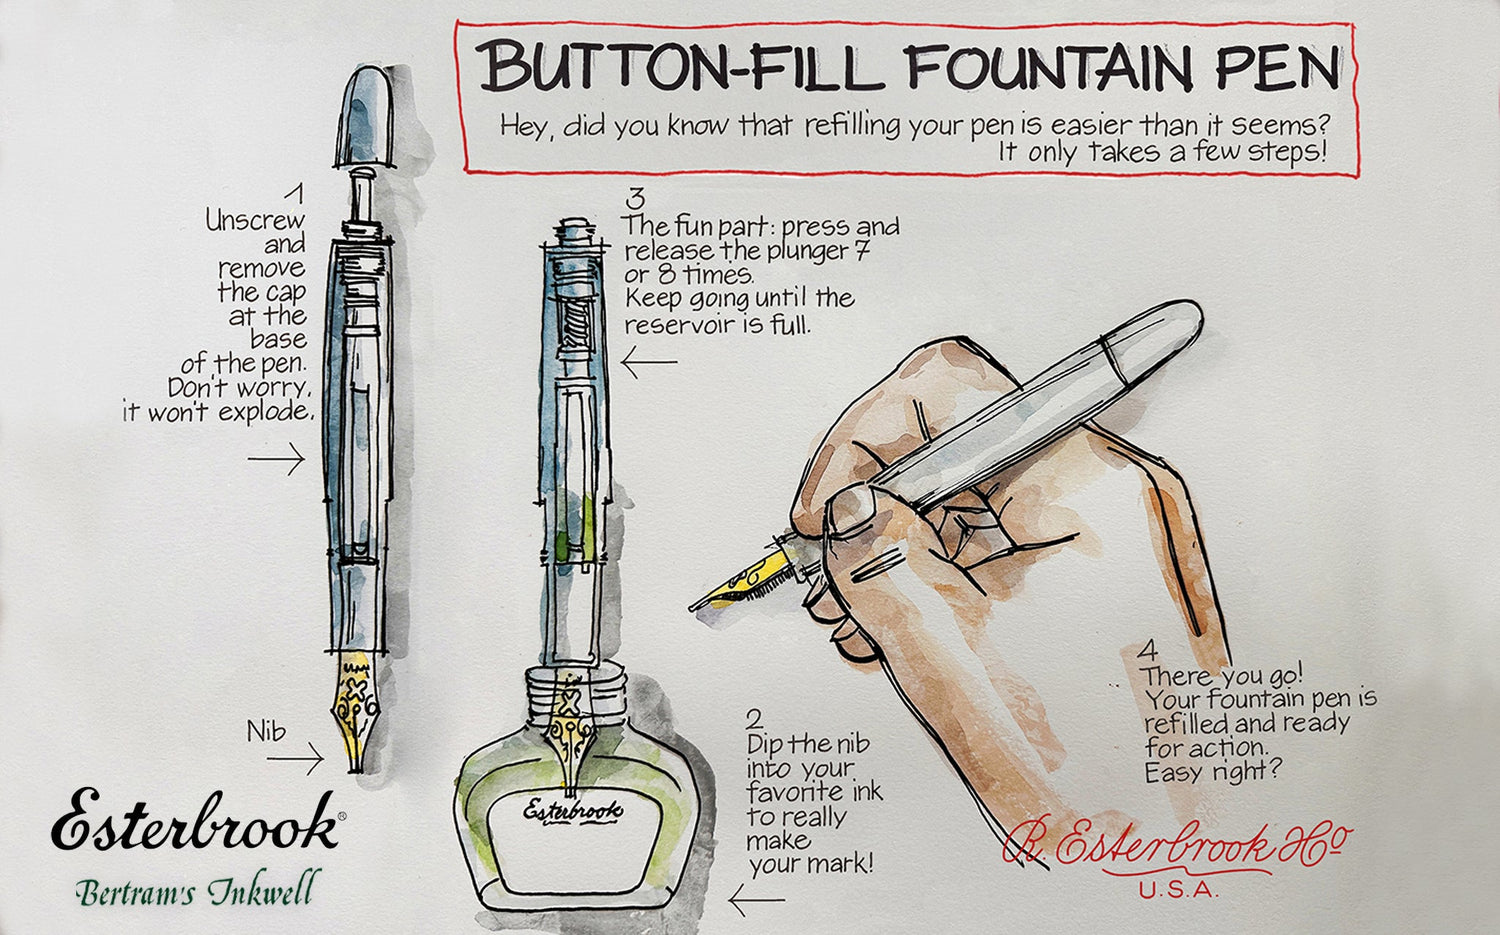 BUTTON-FILL FOUNTAIN PEN
Hey, did you know that refilling your pen is easier than it seems?
It only takes a few steps!
1
Unscrew
and
remove
the cap
at the
base
of the pen.
Don't worry,
it won't explode.
Nib
2
Dip the nib
into your
favorite ink
to really
make
your mark!
Esterbrook
3
The fun part: press and
release the plunger 7
or 8 times.
Keep going until the
reservoir is full.
4
There you go!
Your fountain pen is
refilled and ready
for action.
Easy right?
Esterbrook®
Bertram's Inkwell
R. Esterbrook & Co
U.S.A.